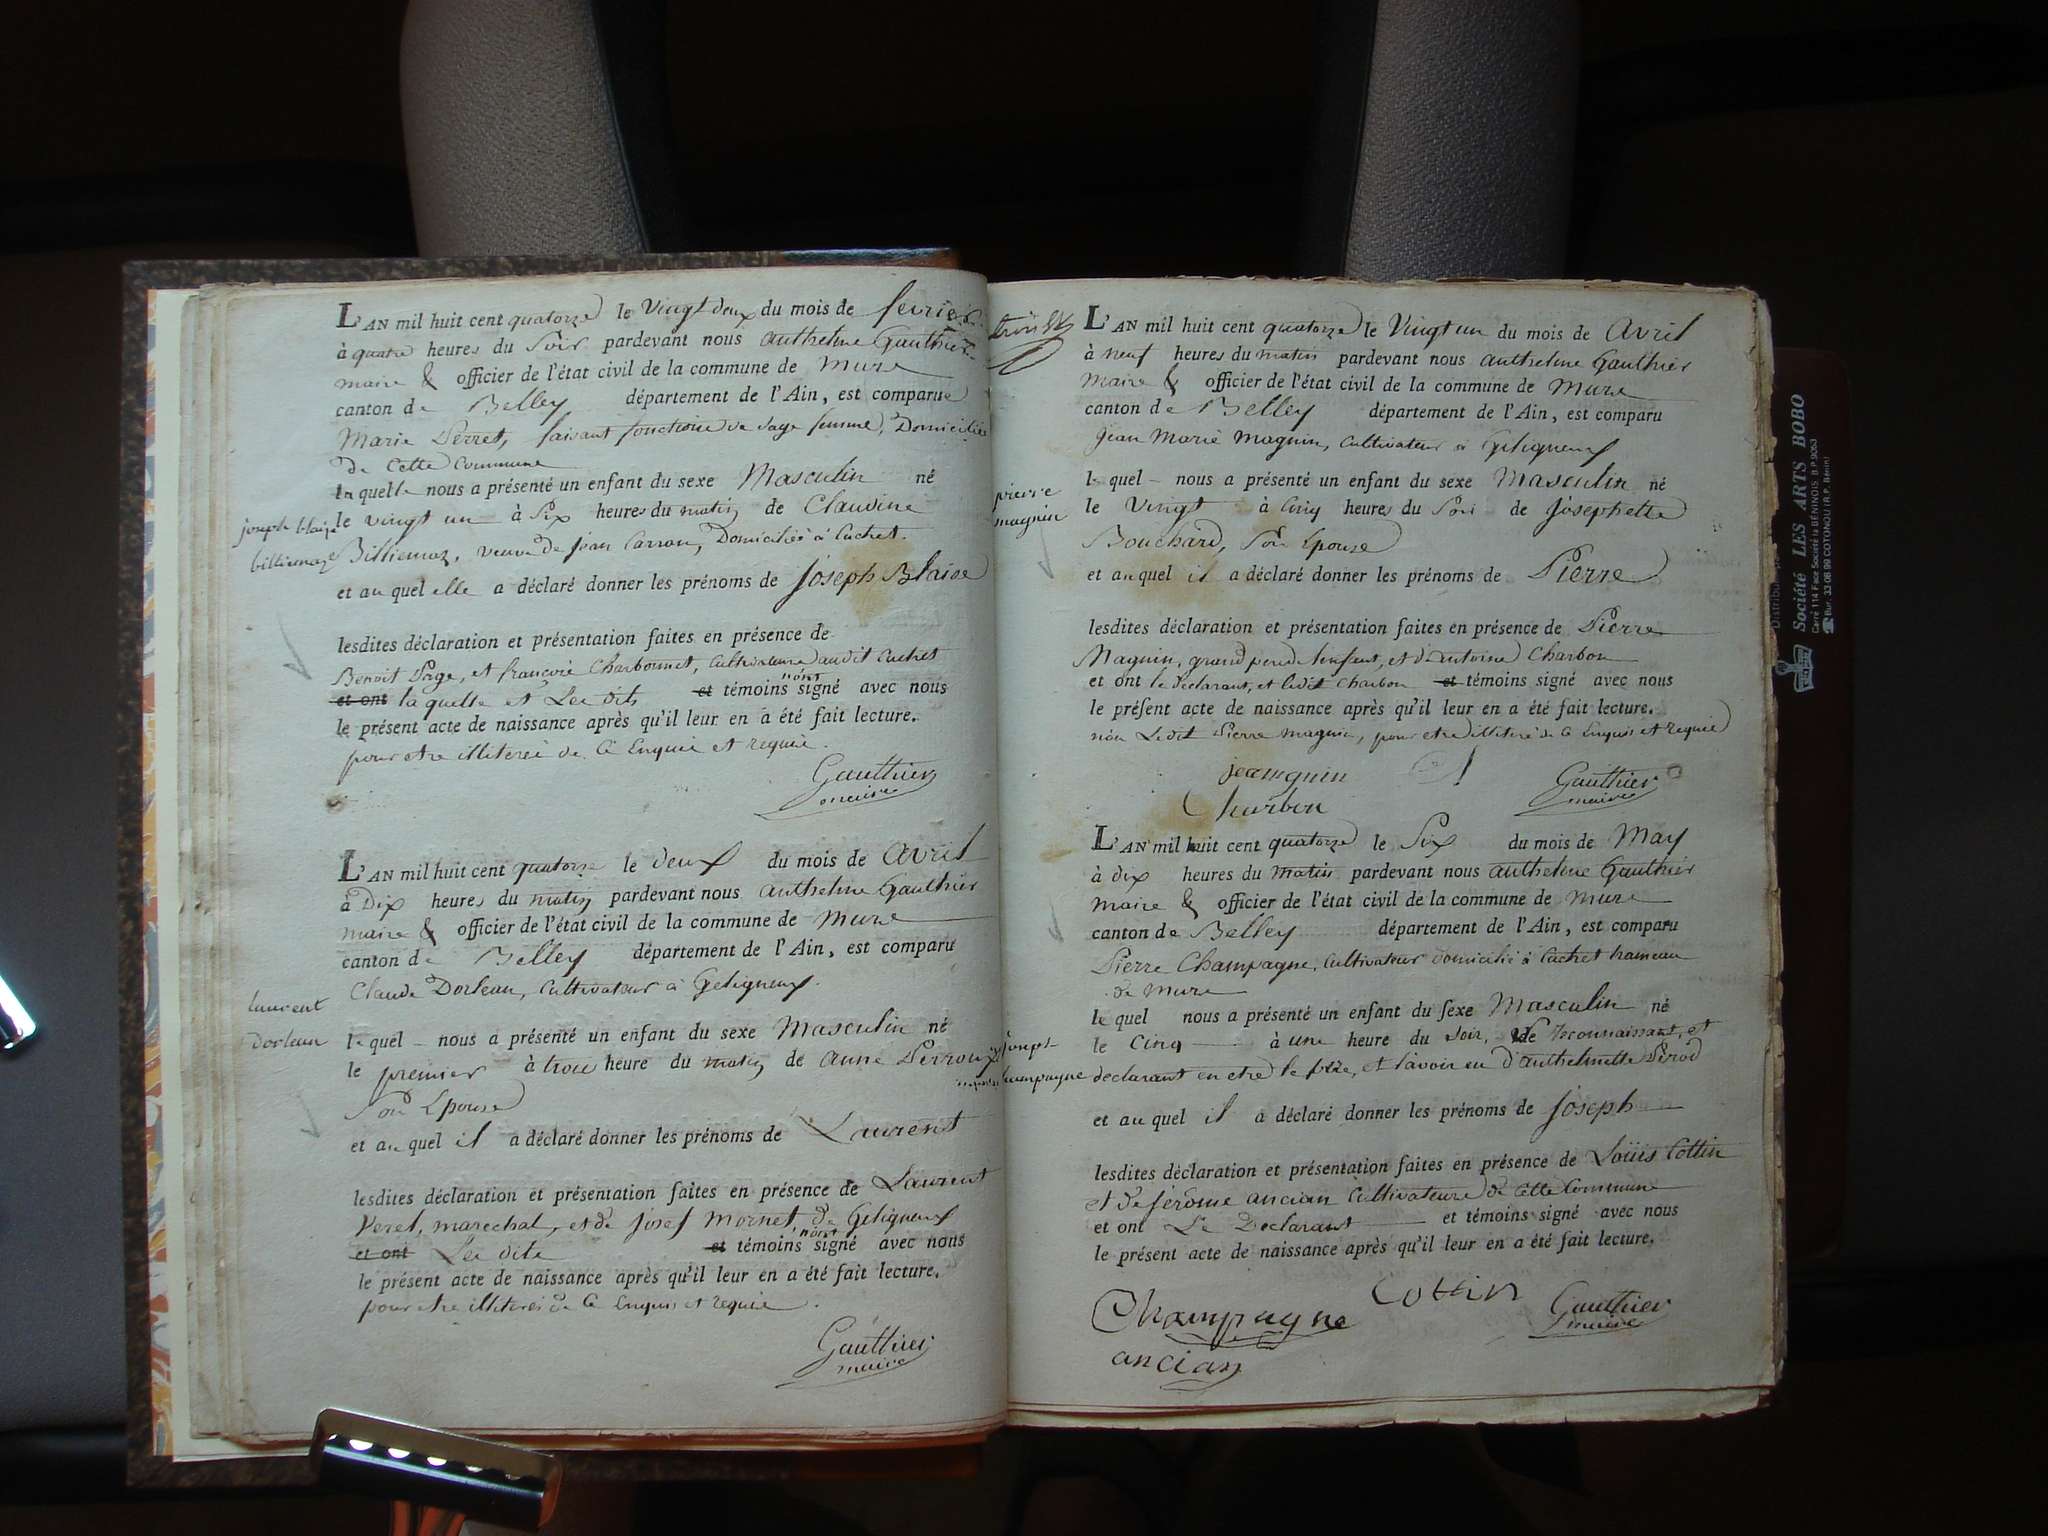 L'AN mil huit cent quatorze le vingt deux du mois de fevrier
à quatre heures du soir pardevant nous anthelme Gauthier
maire & officier de l'état civil de la commune de Mure
canton de Belley département de l'Ain, est comparue
Marie Perret, faisant fonctions de sage femme, Domiciliée
de Cette Commune
la quelle nous a présenté un enfant du sexe Masculin né
joseph blaize
le vingt un à six heures du matin de Claudine
billiemaz
Billiemaz, veuve de jean Carron, Domiciliés à Cuchet.
et au quel elle a déclaré donner les prénoms de Joseph Blaise
lesdites déclaration et présentation faites en présence de
Benoit Page, et françois Charbonnet, Cultivateurs audit Cuchet
et ont la quelle et Les dits et témoins n'ont signé avec nous
le présent acte de naissance après qu'il leur en a été fait lecture.
pour etre illiterés de Ce Enquis et requis.
Gauthier
maire
L'AN mil huit cent quatorze le deux du mois de avril
à Dix heures du matin pardevant nous anthelme Gauthier
maire & officier de l'état civil de la commune de Mure
canton de Belley département de l'Ain, est comparu
Claude Dorlean, Cultivateur à Getigneux.
laurent
dorlean
le quel nous a présenté un enfant du sexe Masculin né
le premier à trois heure du matin de anne Perroux
Son Epouse
et au quel il a déclaré donner les prénoms de Laurent
lesdites déclaration et présentation faites en présence de Laurent
Veret, marechal, et de Josef Mornet, de Getigneux
et ont Les dits et témoins n'ont signé avec nous
le présent acte de naissance après qu'il leur en a été fait lecture.
pour etre illiterés de Ce Enquis et requis.
Gauthier
maire
L'AN mil huit cent quatorze le Vingt un du mois de Avril
à neuf heures du matin pardevant nous anthelme Gauthier
maire & officier de l'état civil de la commune de Mure
canton de Belley département de l'Ain, est comparu
Jean Marie Magnin, Cultivateur à Getigneux
le quel nous a présenté un enfant du sexe Masculin né
pierre
magnin
le Vingt à Cinq heures du Soir de Josephette
Bouchard, Son Epouse
et au quel il a déclaré donner les prénoms de Pierre
lesdites déclaration et présentation faites en présence de Pierre
Magnin, grand pere de lenfant, et d'antoine Charbon
et ont le déclarant, et ledit Charbon et témoins signé avec nous
le présent acte de naissance après qu'il leur en a été fait lecture.
non Ledit Pierre magnin, pour etre illiteré de Ce Enquis et requis
jeamgnin
Charbon
Gauthier
maire
L'AN mil huit cent quatorze le Six du mois de May
à dix heures du matin pardevant nous anthelme Gauthier
maire & officier de l'état civil de la commune de Mure
canton de Belley département de l'Ain, est comparu
Pierre Champagne, Cultivateur domicilié à Cuchet hameau
de Mure
le quel nous a présenté un enfant du sexe Masculin né
joseph
champagne
le Cinq à une heure du soir, se Reconnaissant, et
declarant en etre le père, et l'avoir eu d'anthelmette Pérod
et au quel il a déclaré donner les prénoms de Joseph
lesdites déclaration et présentation faites en présence de Loüis Cottin
et de jérome ancian Cultivateurs de Cette Commune
et ont Le Déclarant et témoins signé avec nous
le présent acte de naissance après qu'il leur en a été fait lecture.
Cottin
Champagne
Gauthier
maire
ancian
Société LES ARTS BOBO